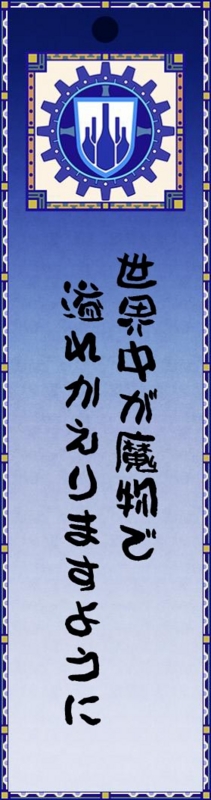 世界中が魔物で
溢れかえりますように